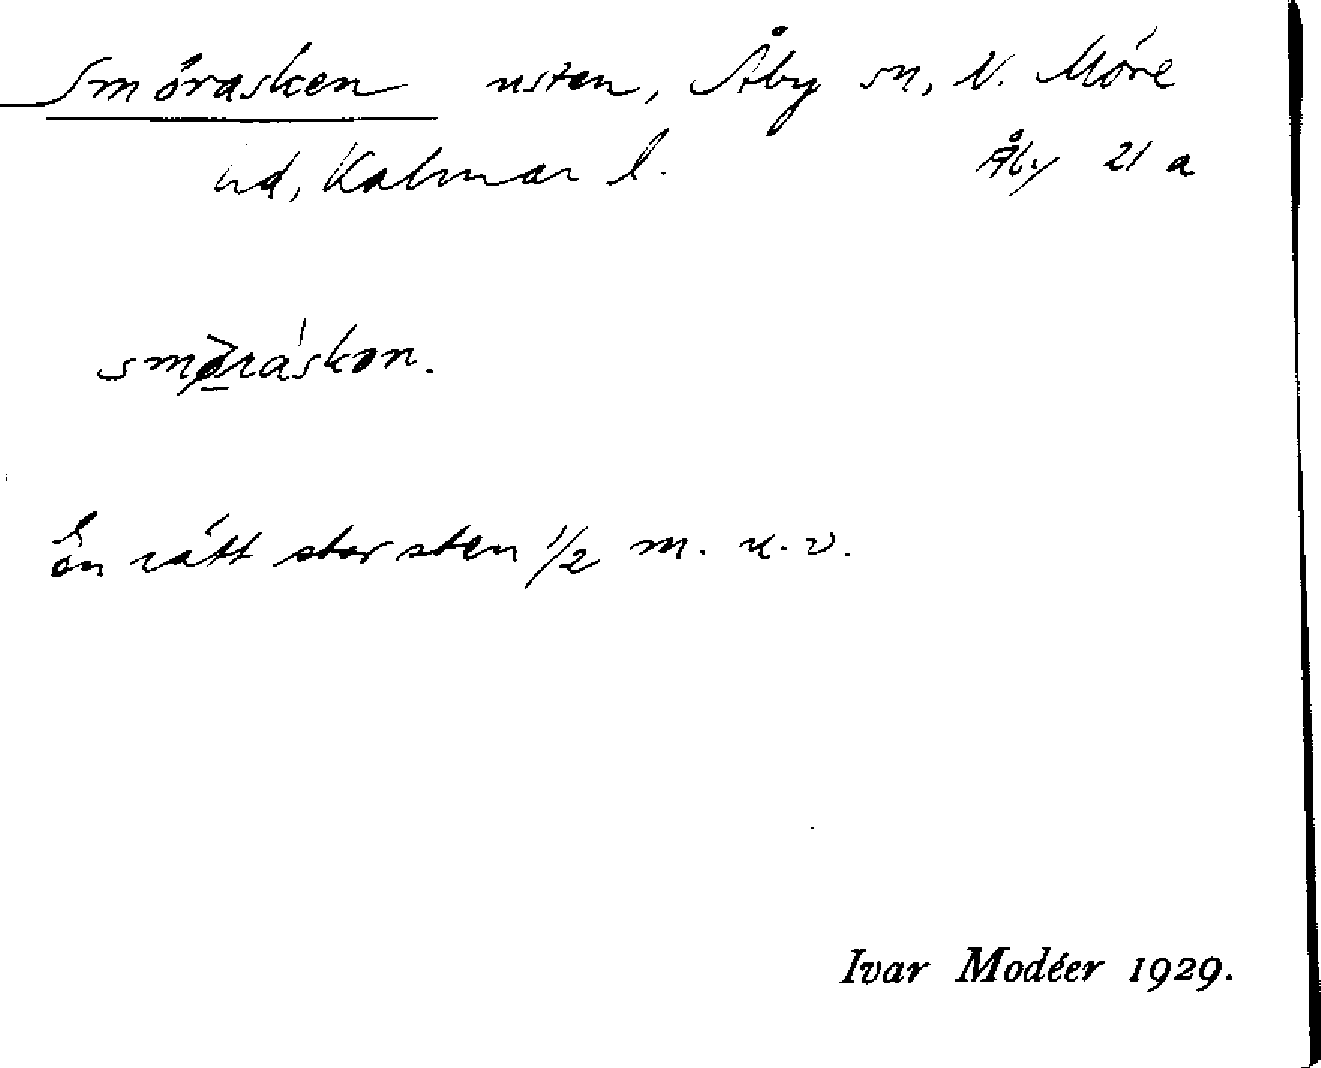 Smörasken usten, Åby sn, N. Möre
hd, Kalmar l. Åby 21 a
smøráskən.
En rätt stor sten 1/2 m. u. v.
Ivar Modéer 1929.